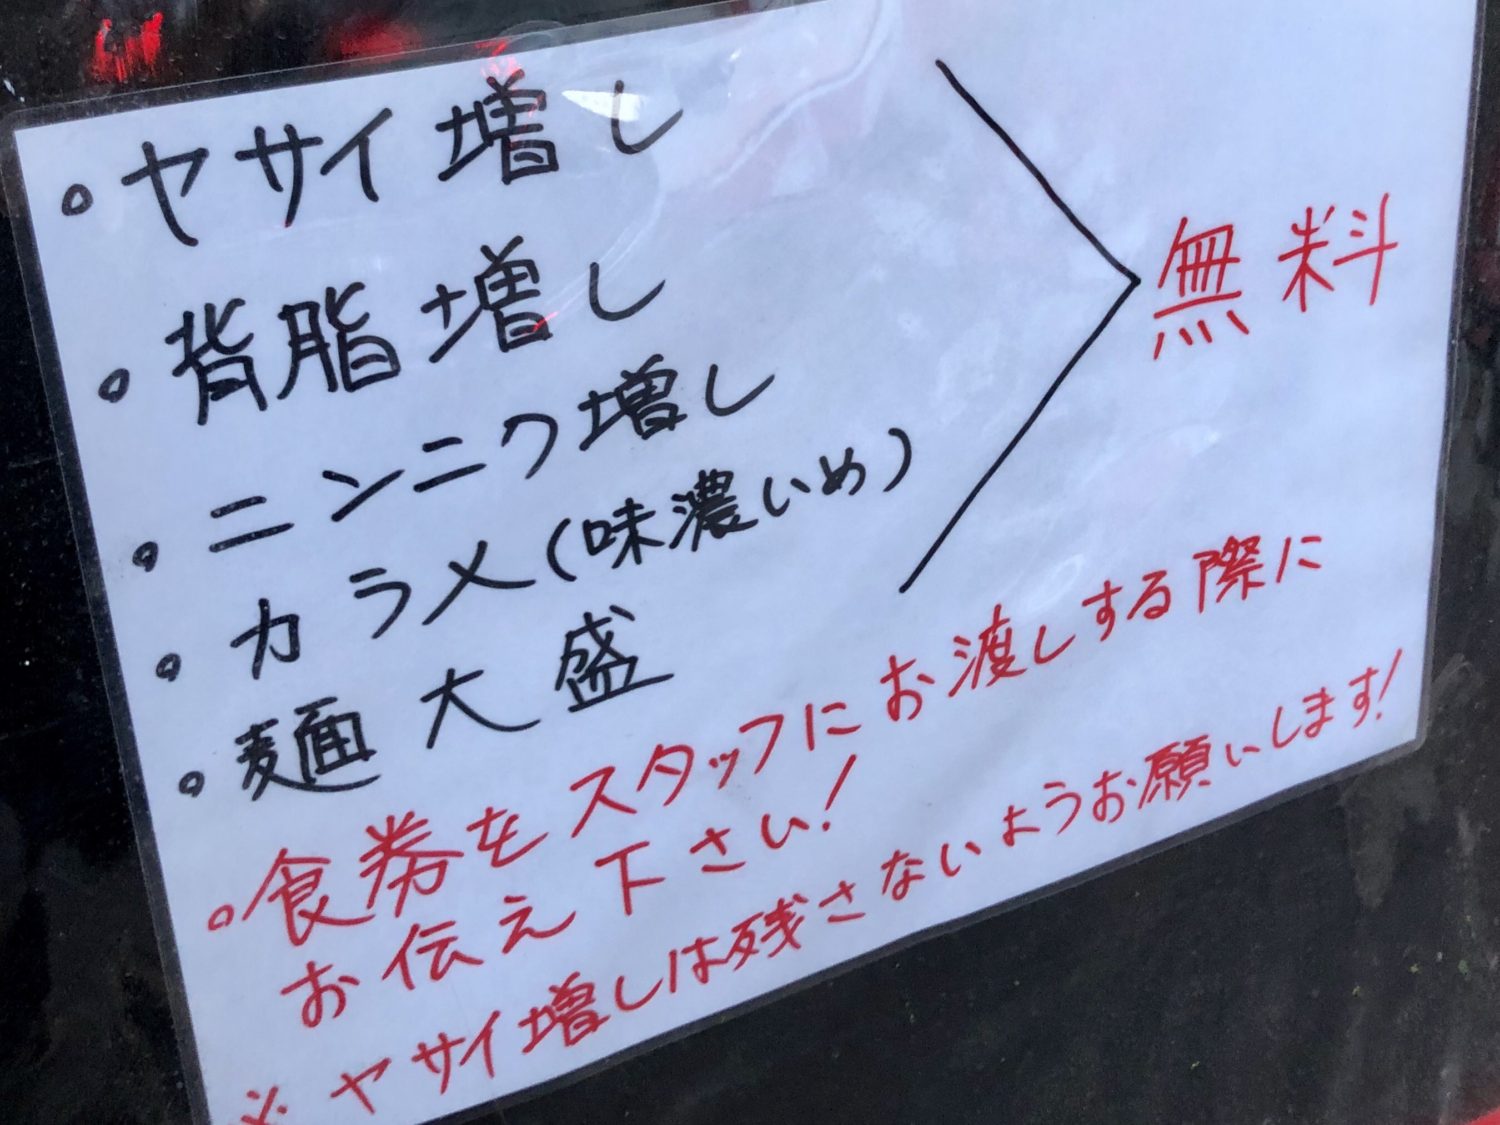 。ヤサイ増し
。背脂増し
。ニンニク増し
。カラメ(味濃いめ)
。麺大盛
無料
。食券をスタッフにお渡しする際に
お伝え下さい!
※ヤサイ増しは残さないようお願いします!